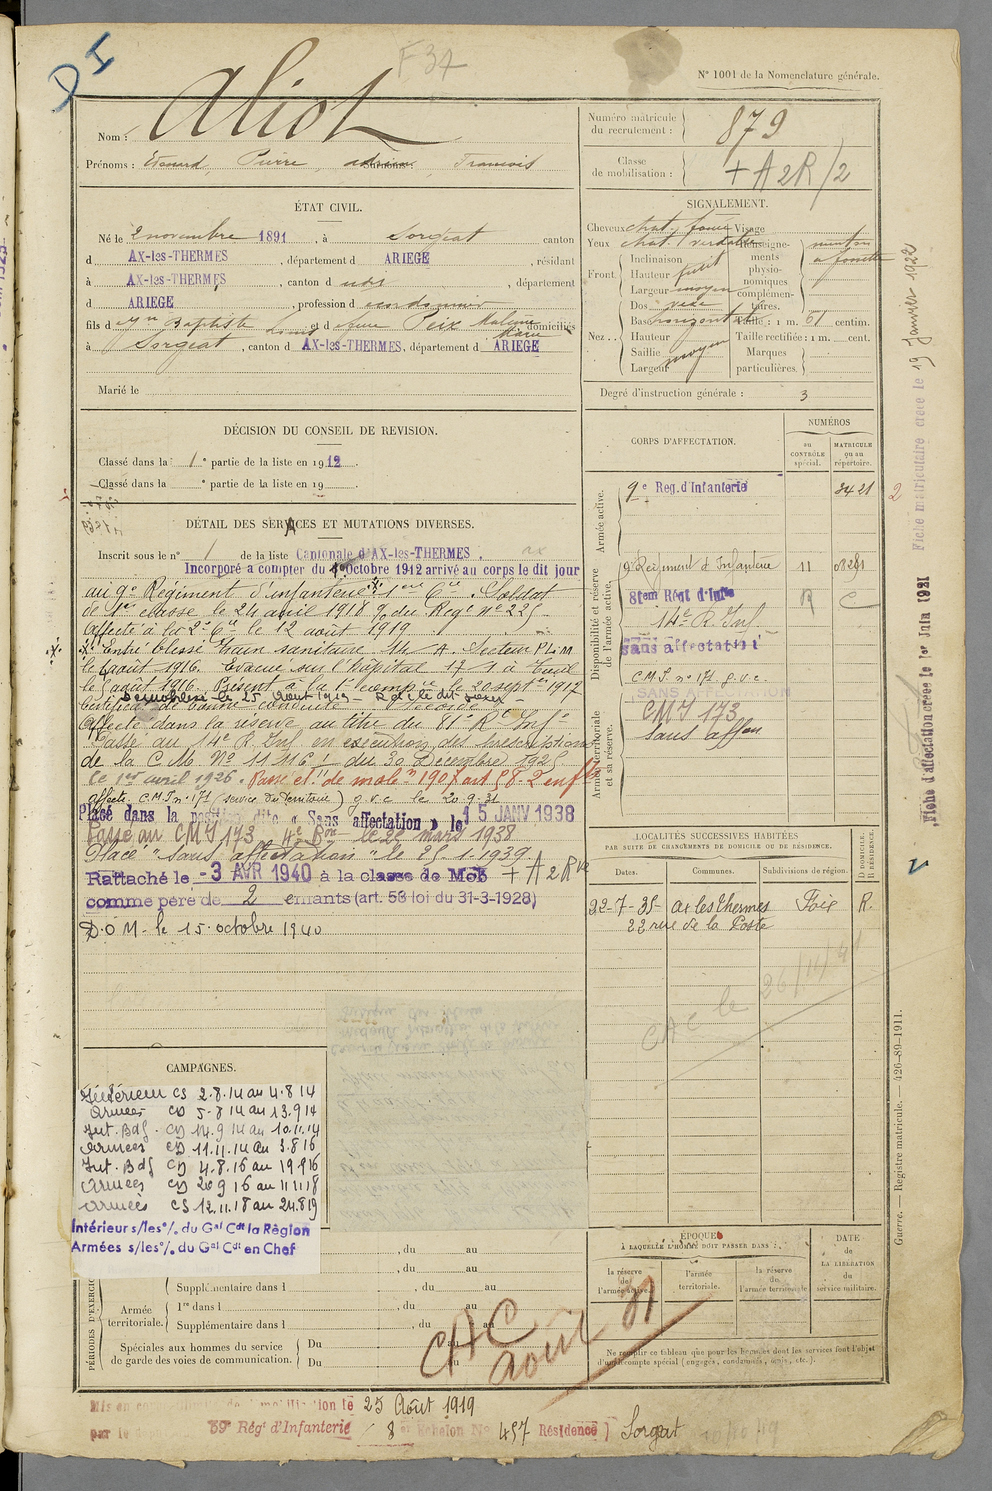 DI
F37
N° 1001 de la Nomenclature générale.
Nom : Aliot
Prénoms : Edouard, Pierre, adrien, Francois
Numéro matricule
du recrutement : 879
Classe
de mobilisation : + A 2R/2
ÉTAT CIVIL.
Né le 2 novembre 1891, à Sorgeat canton
d AX-les-THERMES, département d ARIEGE, résidant
à AX-les-THERMES, canton d , département
d ARIEGE, profession d cordonnier
fils d Baptiste Louis et d Anne Peix domiciliés
à Sorgeat, canton d AX-les-THERMES, département d ARIEGE
Marié le
SIGNALEMENT.
Cheveux chat. foncé Visage
Yeux chat. verdâtre Renseigne-
ments
physio-
nomiques
complémen-
taires.
menton
à fossette
Front. Inclinaison
Hauteur petit
Largeur moyen
Nez... Dos
Base horizontal
Hauteur
Saillie moyen
Largeur
Taille : 1 m. 61 centim.
Taille rectifiée : 1 m. cent.
Marques
particulières.
Degré d'instruction générale : 3
DÉCISION DU CONSEIL DE REVISION.
Classé dans la 1e partie de la liste en 1912.
Classé dans la e partie de la liste en 19
DÉTAIL DES SERVICES ET MUTATIONS DIVERSES.
Inscrit sous le n° 1 de la liste Cantonale d'AX-les-THERMES.
Incorporé a compter du Octobre 1912 arrivé au corps le dit jour
au 9e Régiment d'infanterie 1ère Cie. Soldat
de 1re classe le 24 avril 1918 du Regt n° 225
Affecté à la 2e Cie le 12 août 1919
Entré blessé train sanitaire 14 A. Secteur P.L.M
le 4 août 1916. Evacué sur l'hôpital
le 5 août 1916. Présent à la 1e compie le 20 septbre 1917
Démobilisé le 25 Août 1919
Certificat de bonne conduite accordé
Affecté dans la réserve au titre du 81e R. Infie
Passé au 14e R. Inf en exécution des prescriptions
de la C.M. N° 11316 du 30 Décembre 1925
le 1er avril 1926. Passe cl. de mobon 1907 art 58. 2 enfts
affecté C.M.I n° 171 (service du territoire) g.v.c le 20-9-31
Placé dans la position dite « Sans affectation » le 15 JANV 1938
Passé au CMI 173 le 22 mars 1938
Placé "Sans affectation" le 25-1-1939.
Rattaché le -3 AVR 1940 à la classe de Mob + A 2 R
comme père de 2 enfants (art. 58 loi du 31-3-1928)
D.O.M. le 15 octobre 1940
CORPS D'AFFECTATION.
NUMÉROS
au
CONTRÔLE
spécial.
MATRICULE
ou au
répertoire.
Armée active.
9e Reg. d'Infanterie 3421
Disponibilité et réserve
de l'armée active.
9e Régiment d'Infanterie 11
81em Régt d'Infie
14e R. Inf.
sans affectation
Armée territoriale
et sa réserve.
C.M.I. n° 171 g.v.c.
SANS AFFECTATION
CMI 173
sans affon
LOCALITÉS SUCCESSIVES HABITÉES
PAR SUITE DE CHANGEMENTS DE DOMICILE OU DE RÉSIDENCE.
Dates. Communes. Subdivisions de région. D DOMICILE. R RÉSIDENCE.
22-7-35- Ax les Thermes Foix R.
22 rue de la Poste
CAC le 26/11/41
CAMPAGNES.
Intérieur CS 2.8.14 au 4.8.14
Armées CD 5-8 14 au 13.9 14
Int. Bdg. CD 14.9 14 au 10.11.14
Armées CD 11.11.14 au 3.8 16
Int. Bdg CD 4.8.16 au 19 9 16
Armées CD 20 9 16 au 11 11 18
Armées CS 12.11.18 au 24.8 19
Intérieur s/les°/. du Gal Cdt la Région
Armées s/les°/. du Gal Cdt en Chef
, du au
, du au
PÉRIODES D'EXERCICES
Armée
territoriale.
Supplémentaire dans l , du au
1re dans l , du au
Supplémentaire dans l , du au
Spéciales aux hommes du service
de garde des voies de communication.
Du au
Du au
CAC
Août 31
ÉPOQUES
À LAQUELLE L'HOMME DOIT PASSER DANS :
la réserve
de
l'armée active.
l'armée
territoriale.
la réserve
de
l'armée territoriale
DATE
de
LA LIBÉRATION
du
service militaire.
Ne remplir ce tableau que pour les hommes dont les services font l'objet
d'un décompte spécial (engagés, condamnés, omis, etc.).
Mis en le 25 Août 1919
par le 59e Régt d'Infanterie 8e Echelon N° 457 Résidence Sorgeat
Guerre. — Registre matricule. — 426-89-1911.
Fiche matriculaire créée le 19 Janvier 1922
Fiche d'affectation créée le 1er Juin 1921